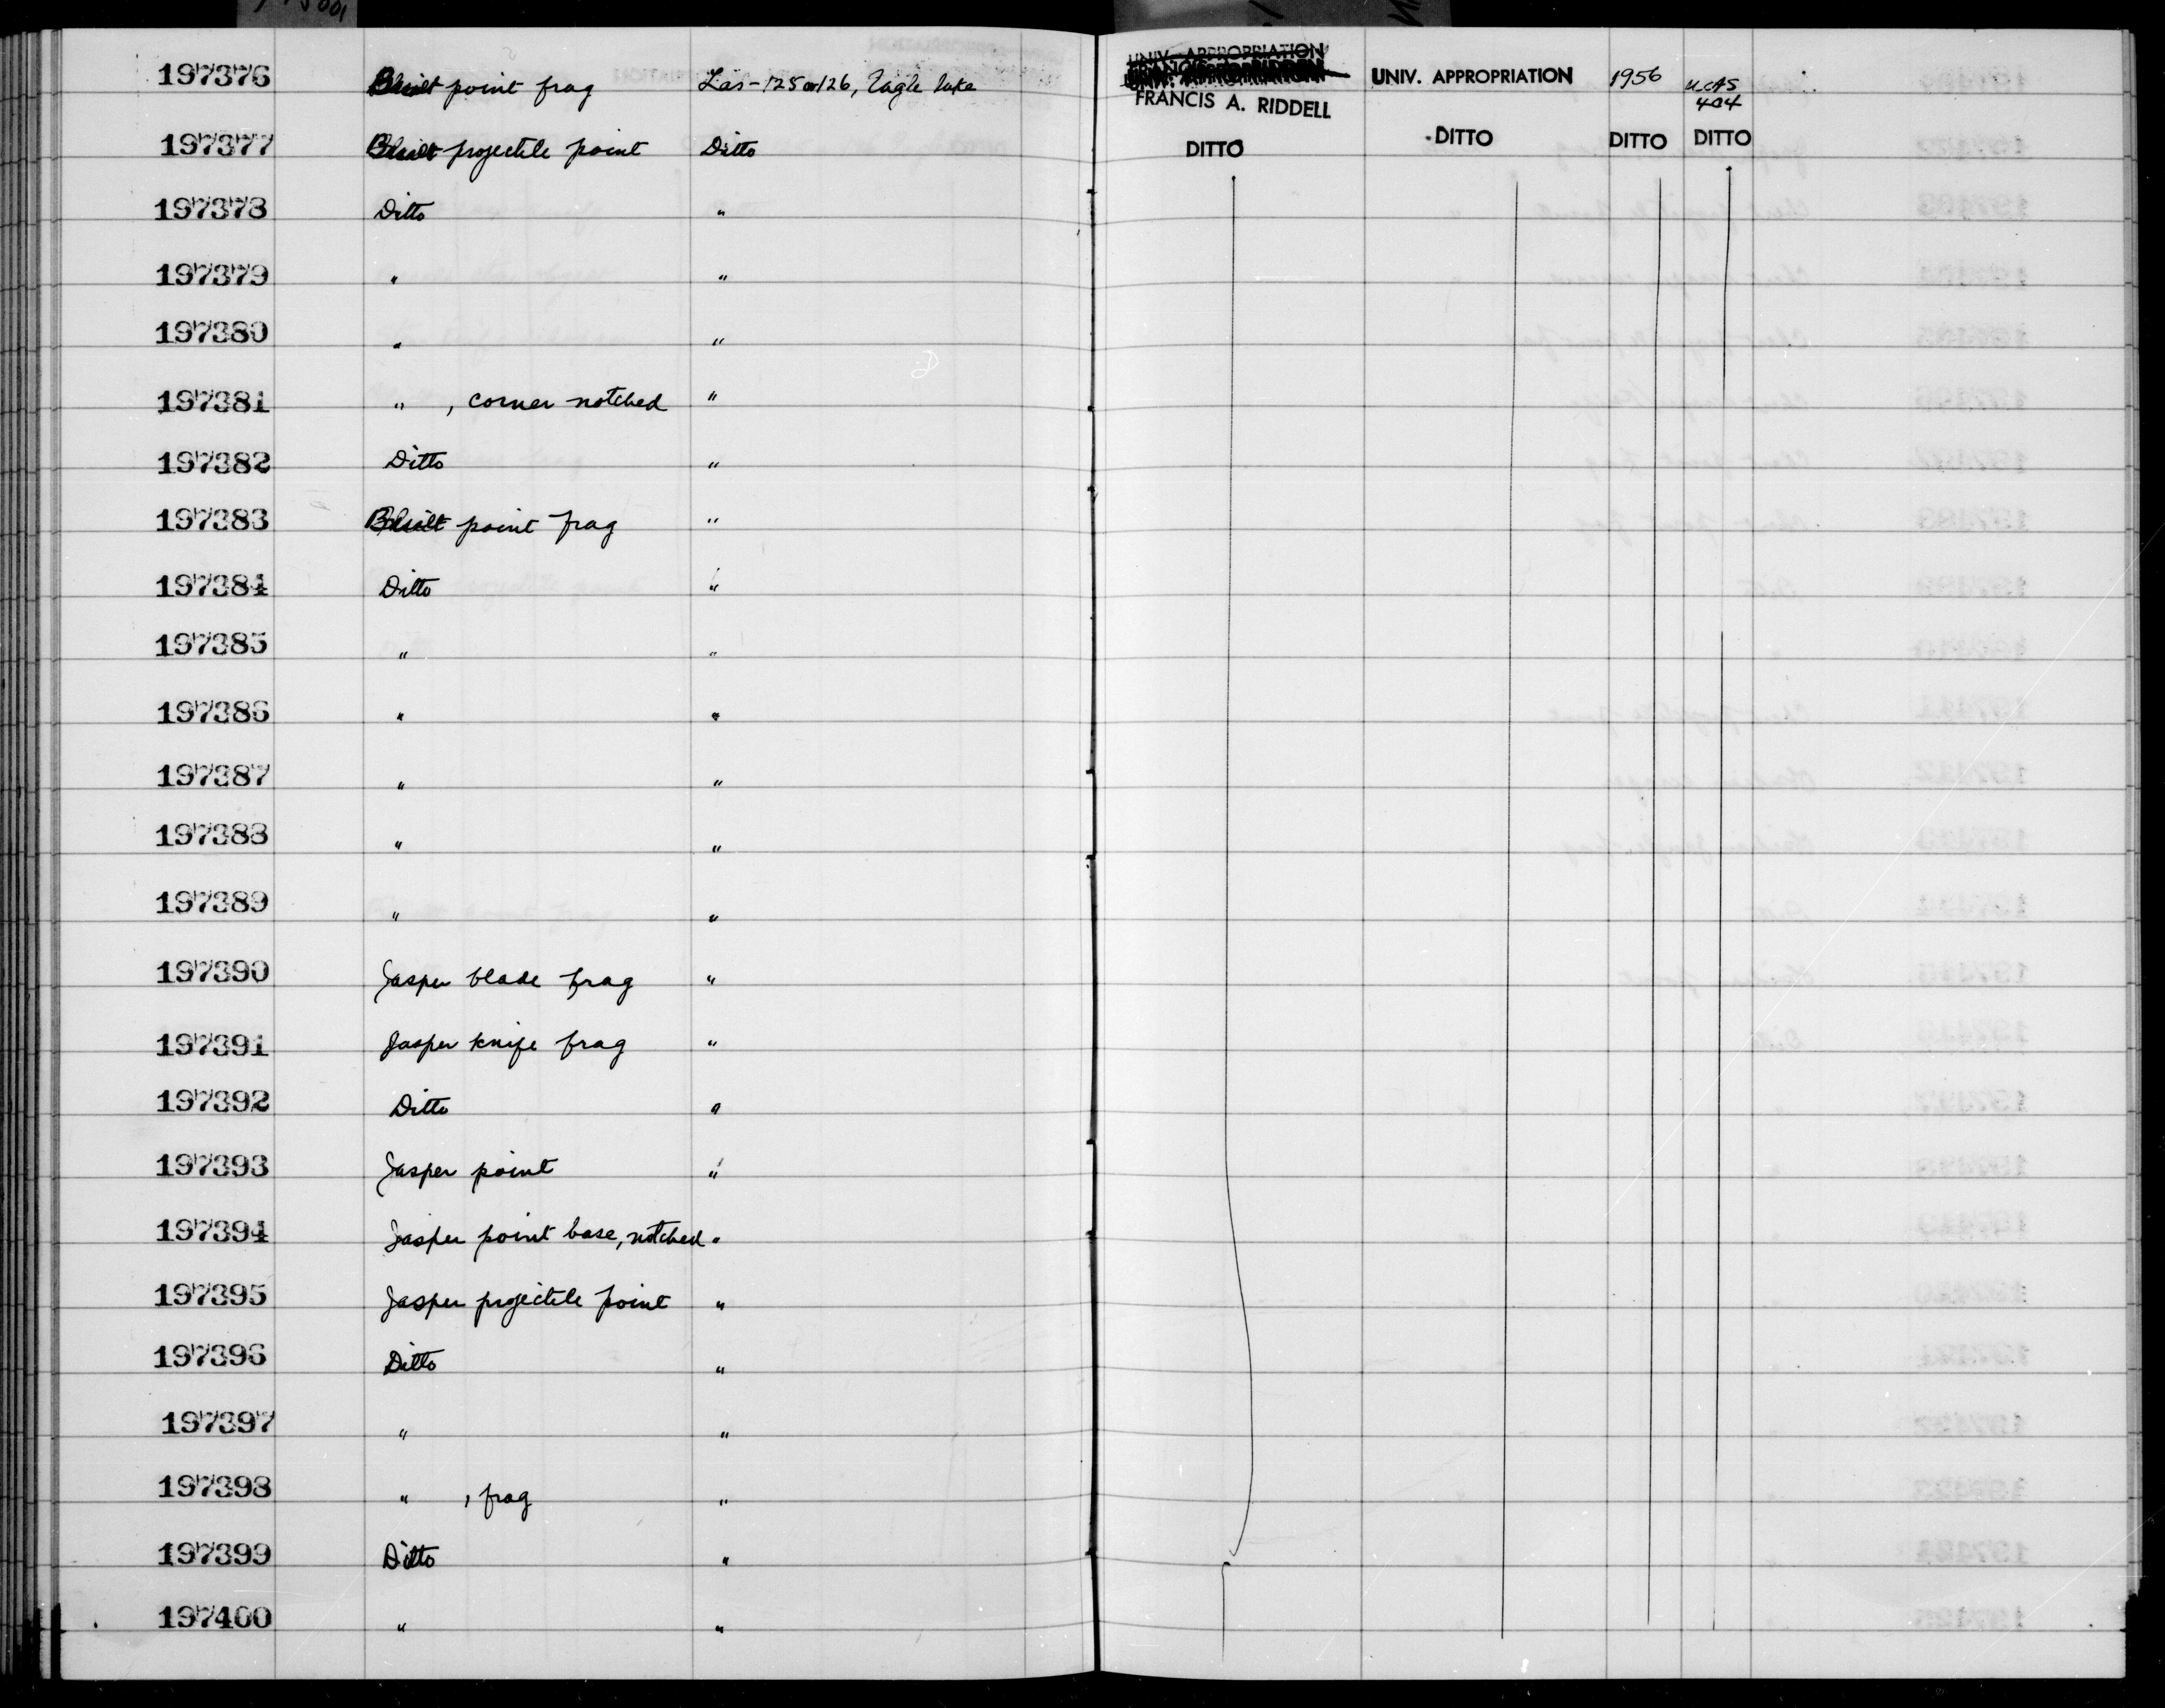 197376 Basalt point frag Las-125 or 126, Eagle Lake FRANCIS A. RIDDELL UNIV. APPROPRIATION 1956 UCAS 404
197377 Basalt projectile point Ditto DITTO DITTO DITTO DITTO
197378 Ditto "
197379 " "
197380 " "
197381 " , corner notched "
197382 Ditto "
197383 Basalt point frag "
197384 Ditto "
197385 " "
197386 " "
197387 " "
197388 " "
197389 " "
197390 Jasper blade frag "
197391 Jasper knife frag "
197392 Ditto "
197393 Jasper point "
197394 Jasper point base, notched "
197395 Jasper projectile point "
197396 Ditto "
197397 " "
197398 " , frag "
197399 Ditto "
197400 " "